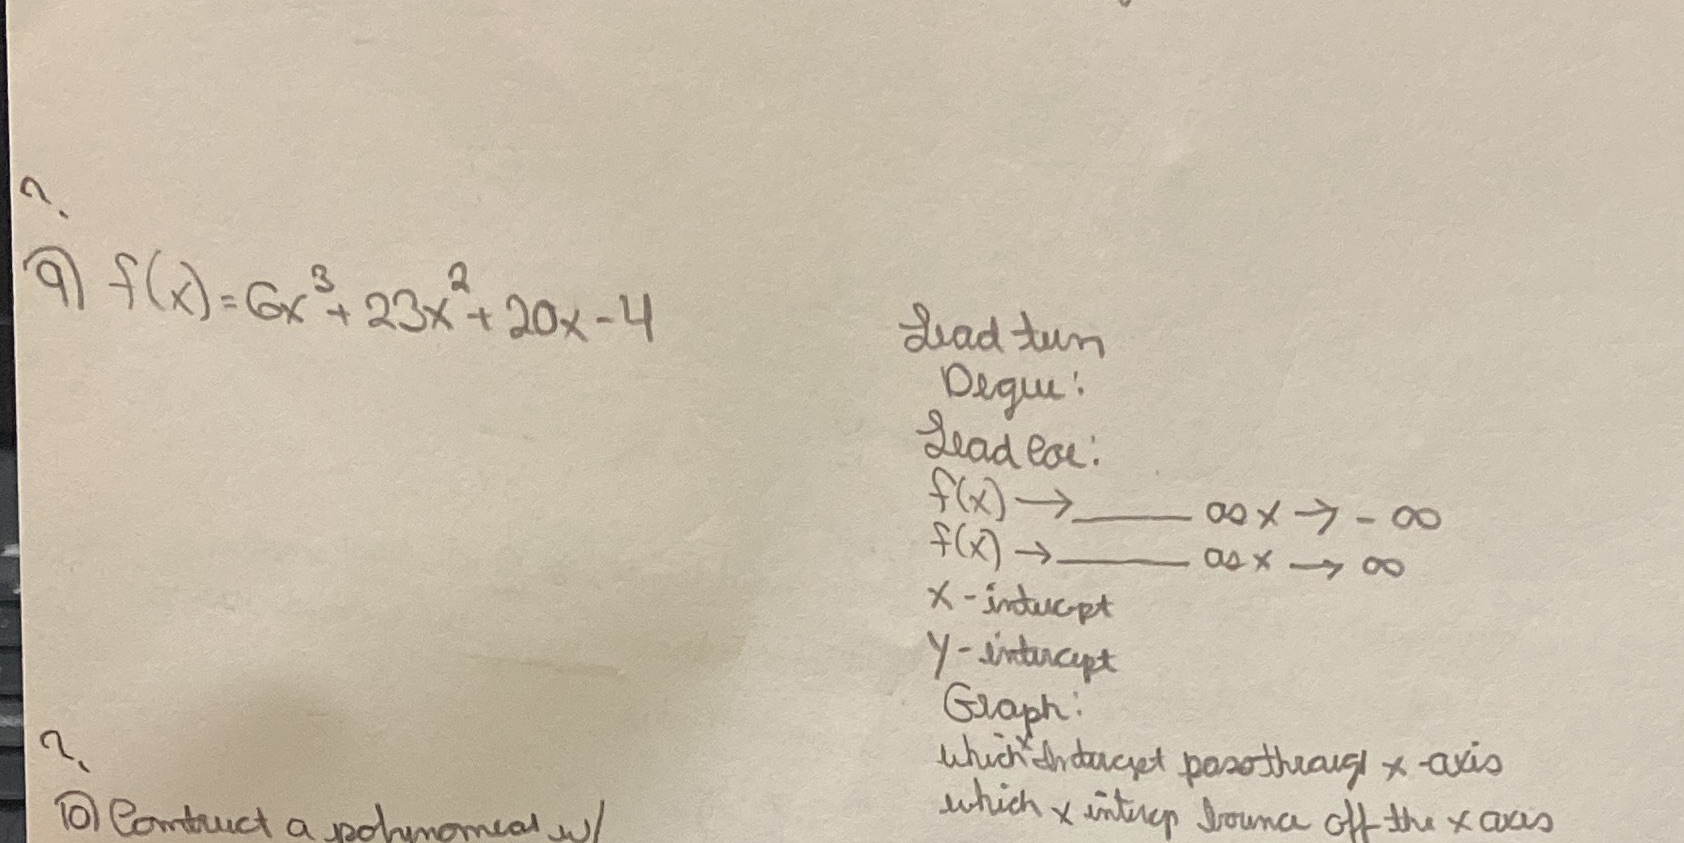 ?
9) f(x)=6x³+23x²+20x-4
Lead term
Degree:
Lead Coe:
f(x) → ____ as x → -∞
f(x) → ____ as x → ∞
x-intercept
y-intercept
Graph:
which x intercept pass through x-axis
which x intercep bounce off the x axis
?
10) Contruct a polynomial w/